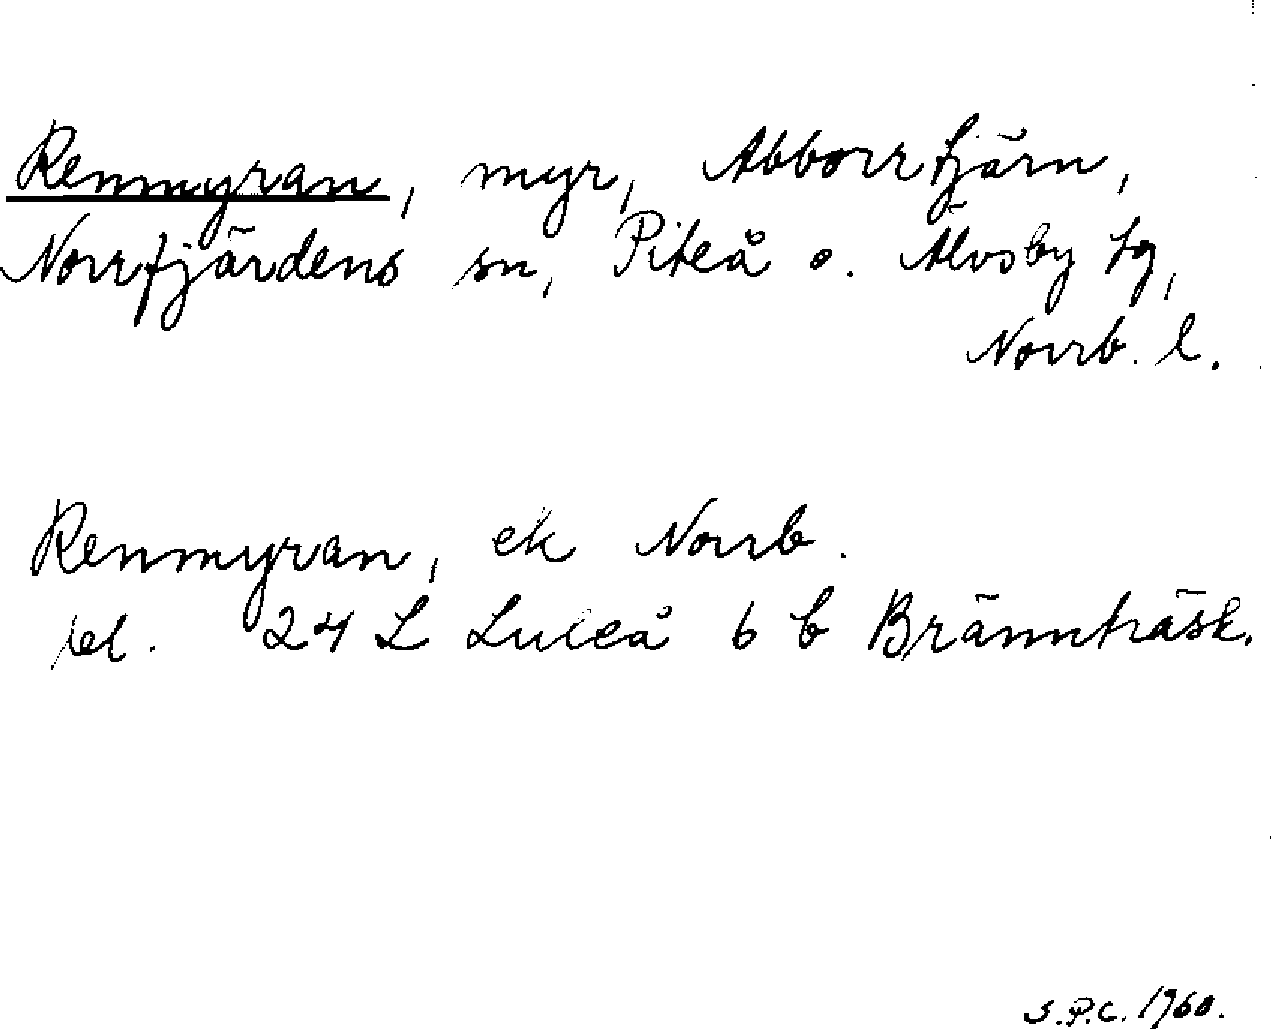 Renmyran, myr, Abborrtjärn,
Norrfjärdens sn, Piteå o. Älvsby tg,
Norrb. l.
Renmyran, ek Norrb.
bl. 24 L Luleå 6 b Brännträsk.
S.P.C. 1960.